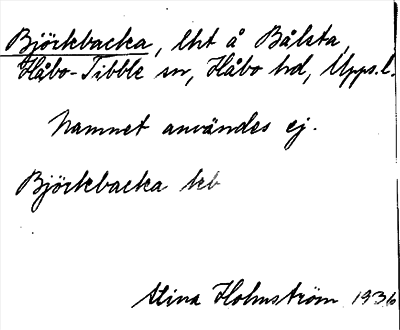 Björkbacka, lht å Bålsta,
Håbo-Tibble sn, Håbo hd, Upps. l.
Namnet användes ej.
Björkbacka krb
Stina Holmström 1936